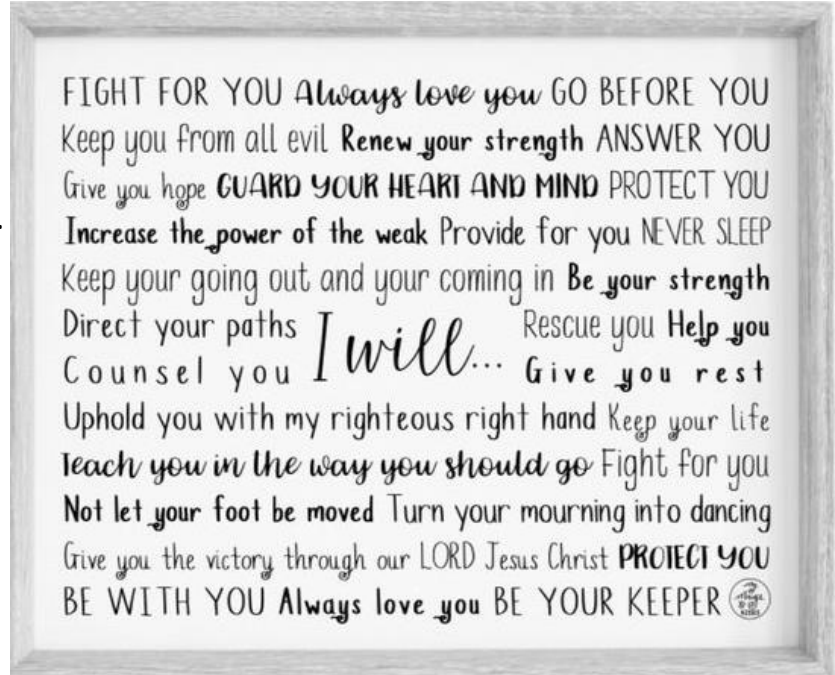 FIGHT FOR YOU Always love you GO BEFORE YOU
Keep you from all evil Renew your strength ANSWER YOU
Give you hope GUARD YOUR HEART AND MIND PROTECT YOU
Increase the power of the weak Provide for you NEVER SLEEP
Keep your going out and your coming in Be your strength
Direct your paths
Counsel you
I will...
Rescue you Help you
Give you rest
Uphold you with my righteous right hand Keep your life
Teach you in the way you should go Fight for you
Not let your foot be moved Turn your mourning into dancing
Give you the victory through our LORD Jesus Christ PROTECT YOU
BE WITH YOU Always love you BE YOUR KEEPER